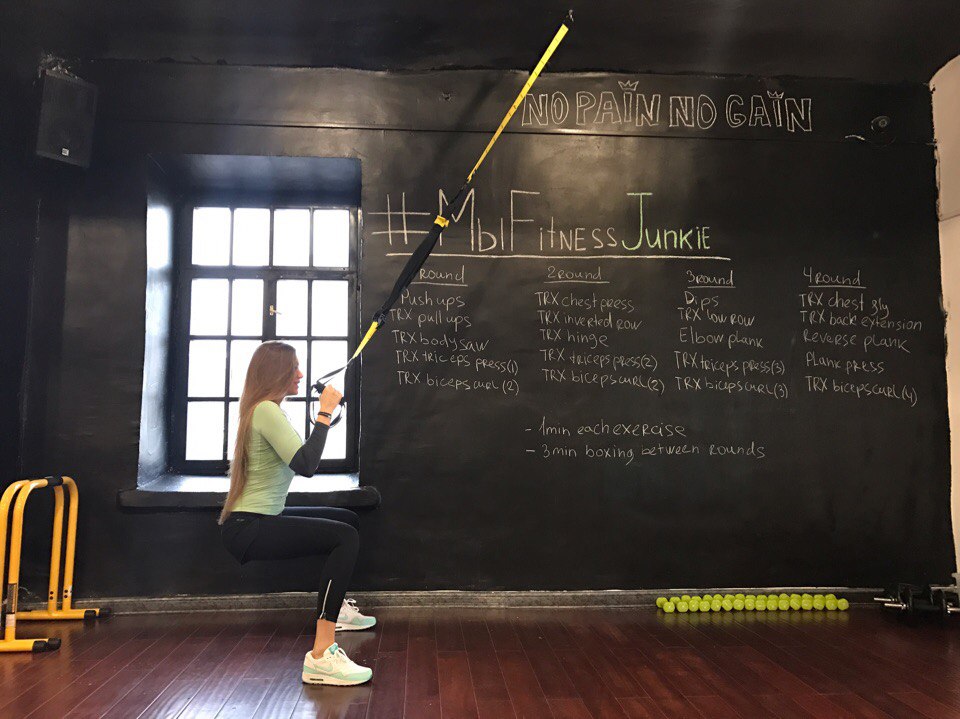 NO PAÏN NO GAÏN
#МыFitnessJunkie
Round
Push ups
TRX pull ups
TRX body saw
TRX triceps press(1)
TRX biceps curl (2)
2 Round
TRX chest press
TRX inverted row
TRX hinge
TRX triceps press(2)
TRX biceps curl(2)
3 Round
Dips
TRX low row
Elbow plank
TRX triceps press(3)
TRX biceps curl(3)
4 Round
TRX chest fly
TRX back extension
Reverse plank
Plank press
TRX biceps curl (4)
- 1min each exercise
- 3 min boxing between rounds